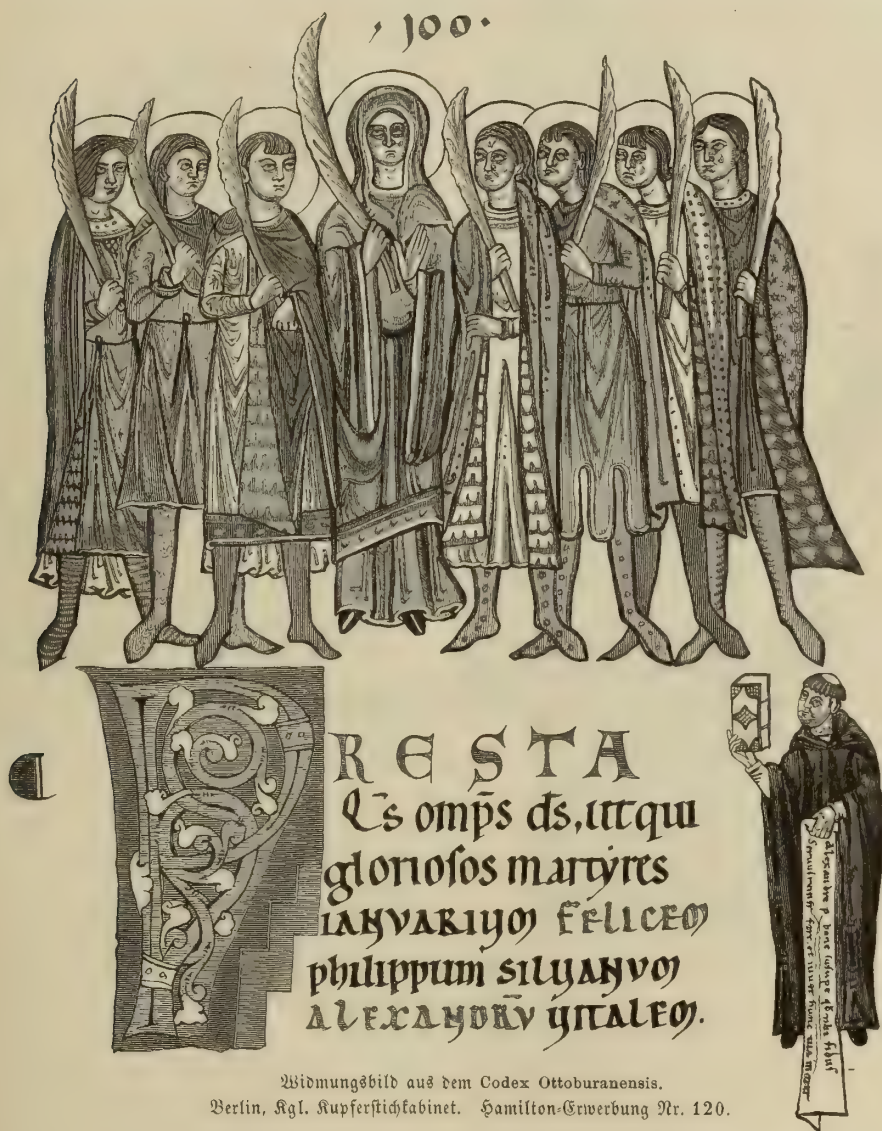 · 100 ·
PRESTA
Q̄s omp̄s d̄s, ut qui
glorioſos martyres
IANVARIUM FELICEM
philippum SILVANVM
ALEXANDRV̄ VITALEM.
Alexandre
hunc
Widmungsbild aus dem Codex Ottoburanensis.
Berlin, Kgl. Kupferſtichkabinet. Hamilton-Erwerbung Nr. 120.